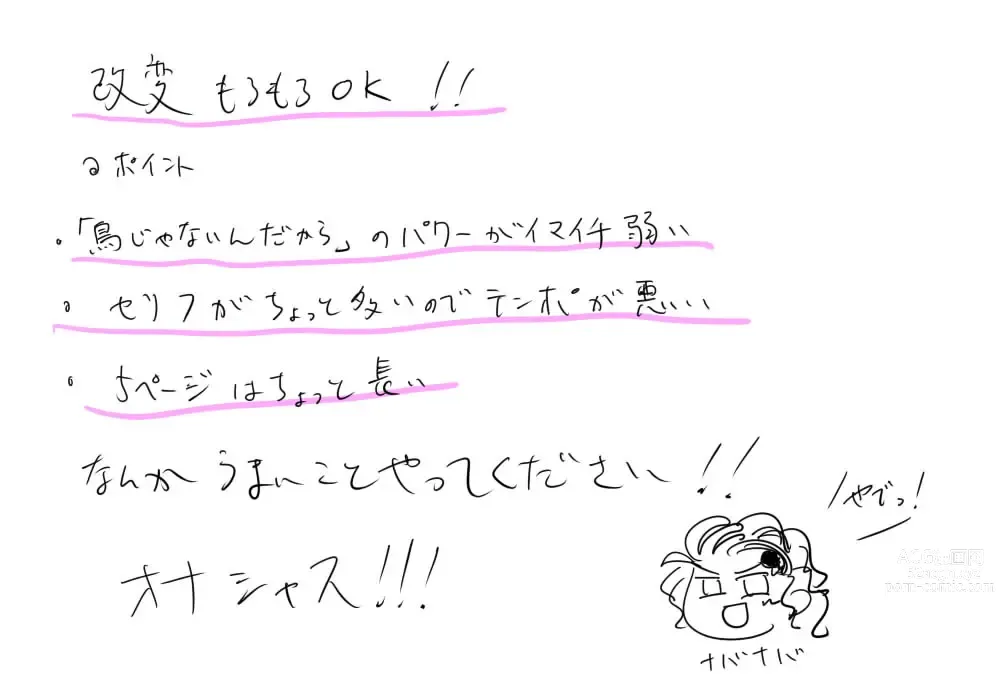 改変もろもろOK!!
ポイント
・「鳥じゃないんだから」のパワーがイマイチ弱い
・セリフがちょっと多いのでテンポが悪い
・5ページはちょっと長い
なんかうまいことやってください!!
やでっ!
オナシャス!!!
ナバナバ